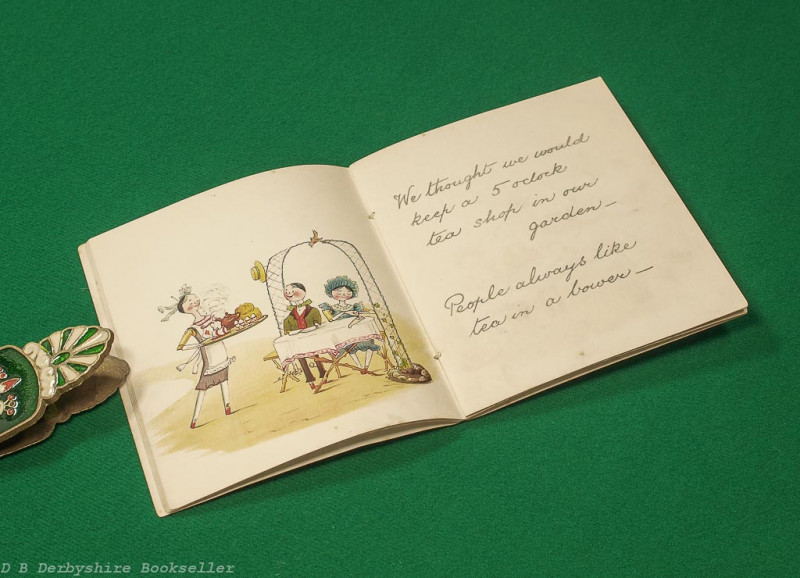 We thought we would
keep a 5 oclock
tea shop in our
garden—
People always like
tea in a bower—
D B Derbyshire Bookseller